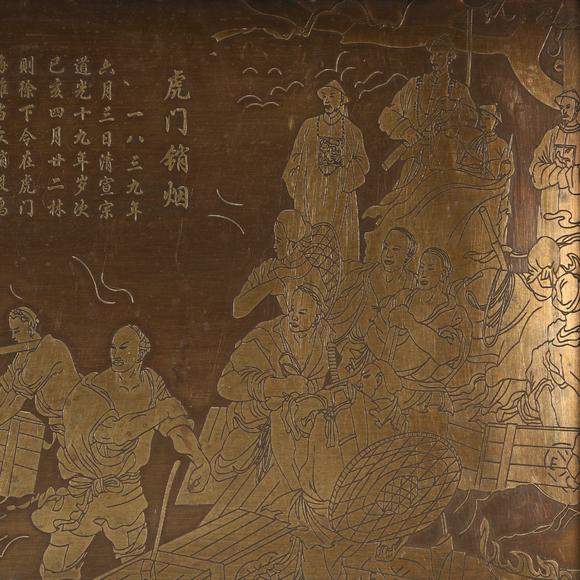 虎门销烟
一八三九年
六月三日清宣宗
道光十九年岁次
己亥四月廿二林
则徐下令在虎门